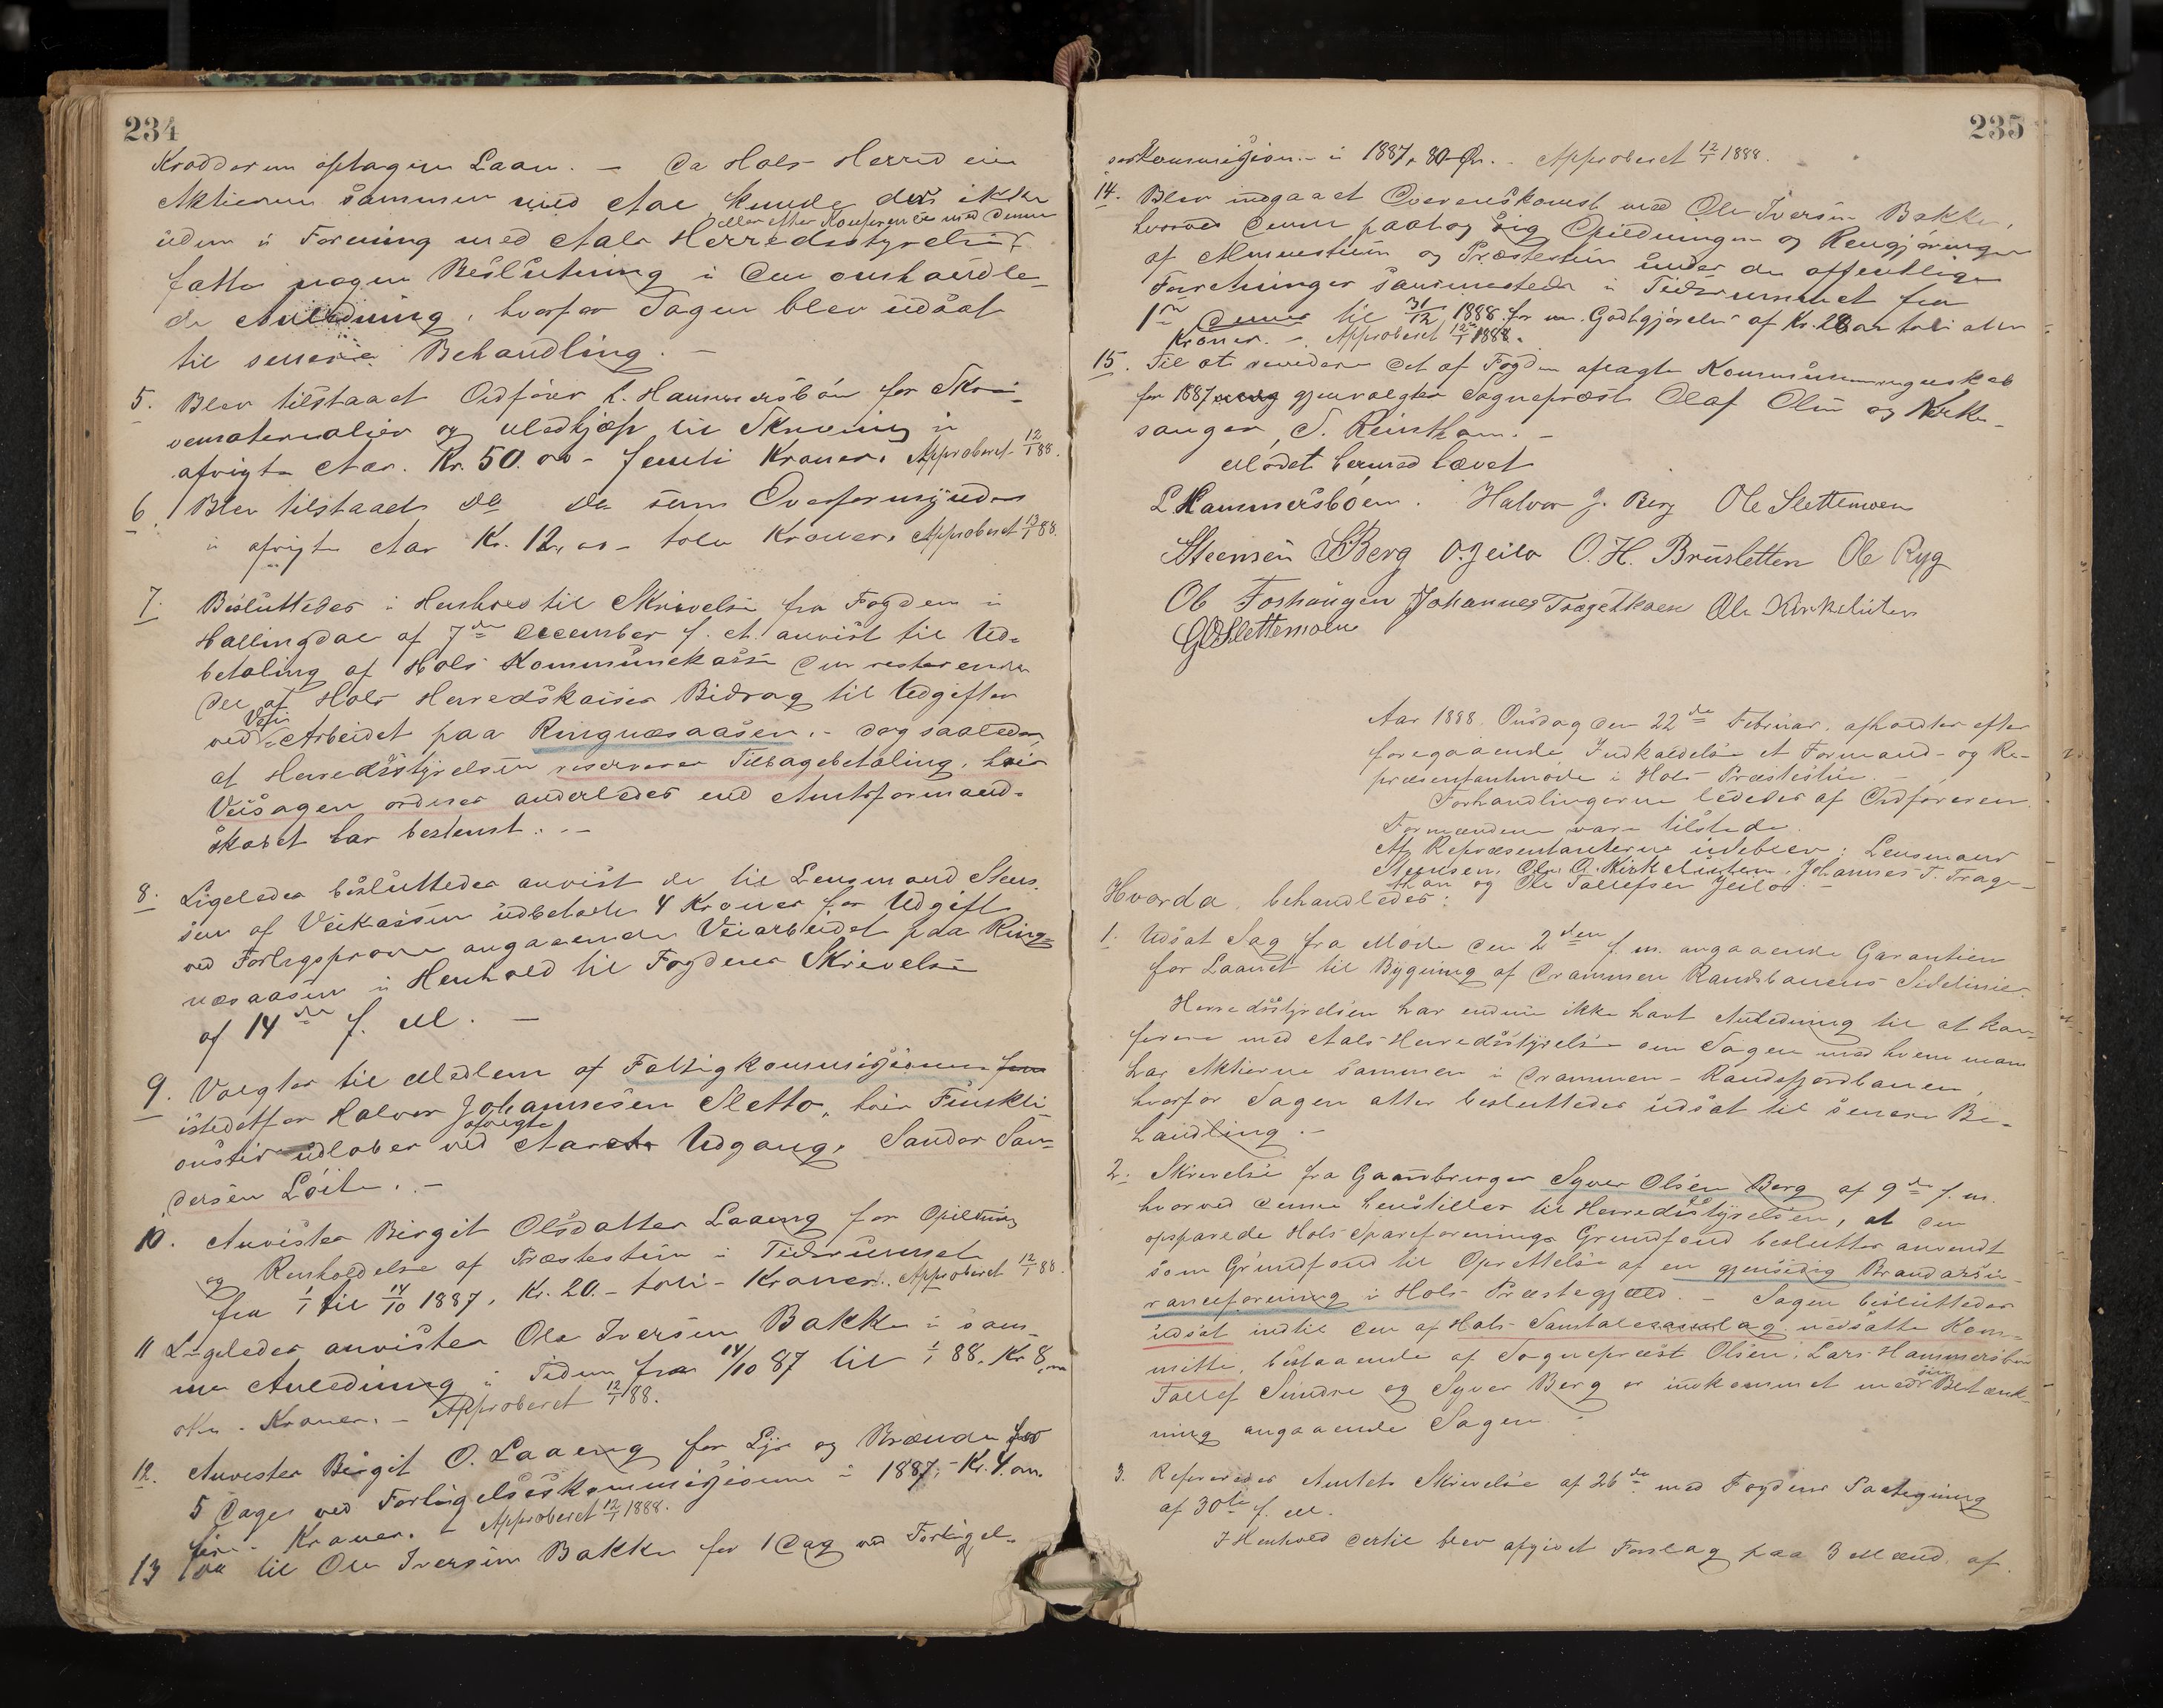 234
Krødderen optagne Laan. — Da Hols Herred eier
Aktierne sammen med Aal kunde der ikke
eller efter Konference med denne
uden i Forening med Aals Herredsstyrelse
fatte nogen Beslutning i den omhandle-
de Anledning, hvorfor Sagen blev udsat
til senere Behandling. —
5. Blev tilstaaet Ordfører L. Hammersbøn for Skri-
vematerialier og Medhjælp til Skrivning i
afvigte Aar. Kr. 50.00 - femti Kroner. Approberet 12/1 88.
6. Blev tilstaaet do do som Overformynder
i afvigte Aar Kr. 12,00 - tolv Kroner. Approberet 12/1 88.
7. Besluttedes i Henhold til Skrivelse fra Fogden i
Hallingdal af 7de December f. A. anvist til Ud-
betaling af Hols Kommunekasse den resterende
Del af Hols Herredskasses Bidrag til Udgifter
Vei
ved Arbeidet paa Ringnæsaasen. - dog saaledes
at Herredsstyrelsen reserverer Tilbagebetaling, hvis
Veisagen ordnes anderledes end Amtsformand-
skabet har bestemt. —
8. Ligeledes besluttedes anvist de til Lensmand Steen-
sen af Veikassen udbetalte 4 Kroner for Udgift
ved Forligsprøve angaaende Veiarbeidet paa Ring-
næsaasen i Henhold til Fogdens Skrivelse
af 14de f. M. —
9. Valgtes til Medlem af Fattigkommisjonen
istedetfor Halvor Johannesen Sletto, hvis Funkti-
afvigte
onstid udløber ved Aars Udgang, Sander San-
dersen Løite. —
10. Anvistes Birgit Olsdatter Laaeng for Opildning
og Renholdelse af Præstestuen i Tidsrummet
fra 1/1 til 14/10 1887, Kr. 20. - tyve - Kroner. Approberet 12/1 88.
11 Ligeledes anvistes Ole Iversen Bakke i sam-
me Anledning i Tiden fra 14/10 87 til 1/1 88. Kr 8,00
otte - Kroner. — Approberet 12/1 88.
12. Anvistes Birgit O. Laaeng for Lys og Brænde for
5 Dage ved Forligelseskommisjionen i 1887, - Kr. 4.00.
fire - Kroner. — Approberet 12/1 1888.
13 do til Ole Iversen Bakke for 1 Dag ved Forligel-
235
seskommisjion. - i 1887, 80 Øre. - Approberet 12/1 1888.
14. Blev indgaaet Overenskomst med Ole Iversen Bakke,
hvorved denne paatog sig Opildningen og Rengjøringen
af Almuestuen og Præstestuen under de offentlige
Forretninger sammesteds i Tidsrummet fra
1ste dennes til 31/12 1888 for en Godtgjørelse af Kr. 28
Kroner. —. Approberet 12/1 1888.
15. Til at revidere det af Fogden aflagte Kommuneregnskab
for 1887 gjenvalgtes Sognepræst Olaf Olsen og Kirke-
sanger S. Reinton. —
Mødet hermed hævet
L Hammersbøen. Halvor J. Berg Ole Slettemoen
Steensen SBerg O. Jeilo O. H. Brusletten Ole Ryg
Ole Foshaugen Johannes Trægethaen Ole Kirkeluten
GOSlettemoen
Aar 1888. Onsdag den 22de Februar, afholdtes efter
foregaaende Indkaldelse et Formand- og Re-
præsentantmøde i Hols Præstestue. —
Forhandlingerne lededes af Ordføreren.
Formændene vare tilstede.
Af Repræsentanterne udeblev: Lensmand
Steensen, Ole O. Kirkeluten, Johannes T. Træge-
thon og Ole Tollefsen Jeilo. —
Hvorda behandledes:
1. Udsat Sag fra Møde den 2den f. m. angaaende Garantien
for Laanet til Bygning af Drammen Randsbanens Sidelinier.
Herredsstyrelsen har endnu ikke havt Anledning til at kon-
ferere med Aals Herredsstyrelse om Sagen med hvem man
har Aktierne sammen i Drammen-Randsfjordbanen,
hvorfor Sagen atter besluttedes udsat til senere Be-
handling. —
2. Skrivelse fra Gaardbruger Syver Olsen Berg af 9de f. m.
hvorved denne henstiller til Herredsstyrelsen, at den
opsparede Hols Spareforenings Grundfond besluttes anvendt
som Grundfond til Oprettelse af en gjensidig Brandassu-
ranceforening i Hols Præstegjæld. — Sagen besluttedes
udsat indtil den af Hols Samtalelag nedsatte Kom-
mitte, bestaaende af Sognepræst Olsen, Lars Hammersbøn
sin
Tollef Sundre og Syver Berg er indkommet med Betænk-
ning angaaende Sagen. —
3. Refereredes Amtets Skrivelse af 26de med Fogdens Paategning
af 30te f. M.
I Henhold dertil blev afgivet Forslag paa 3 Mænd af